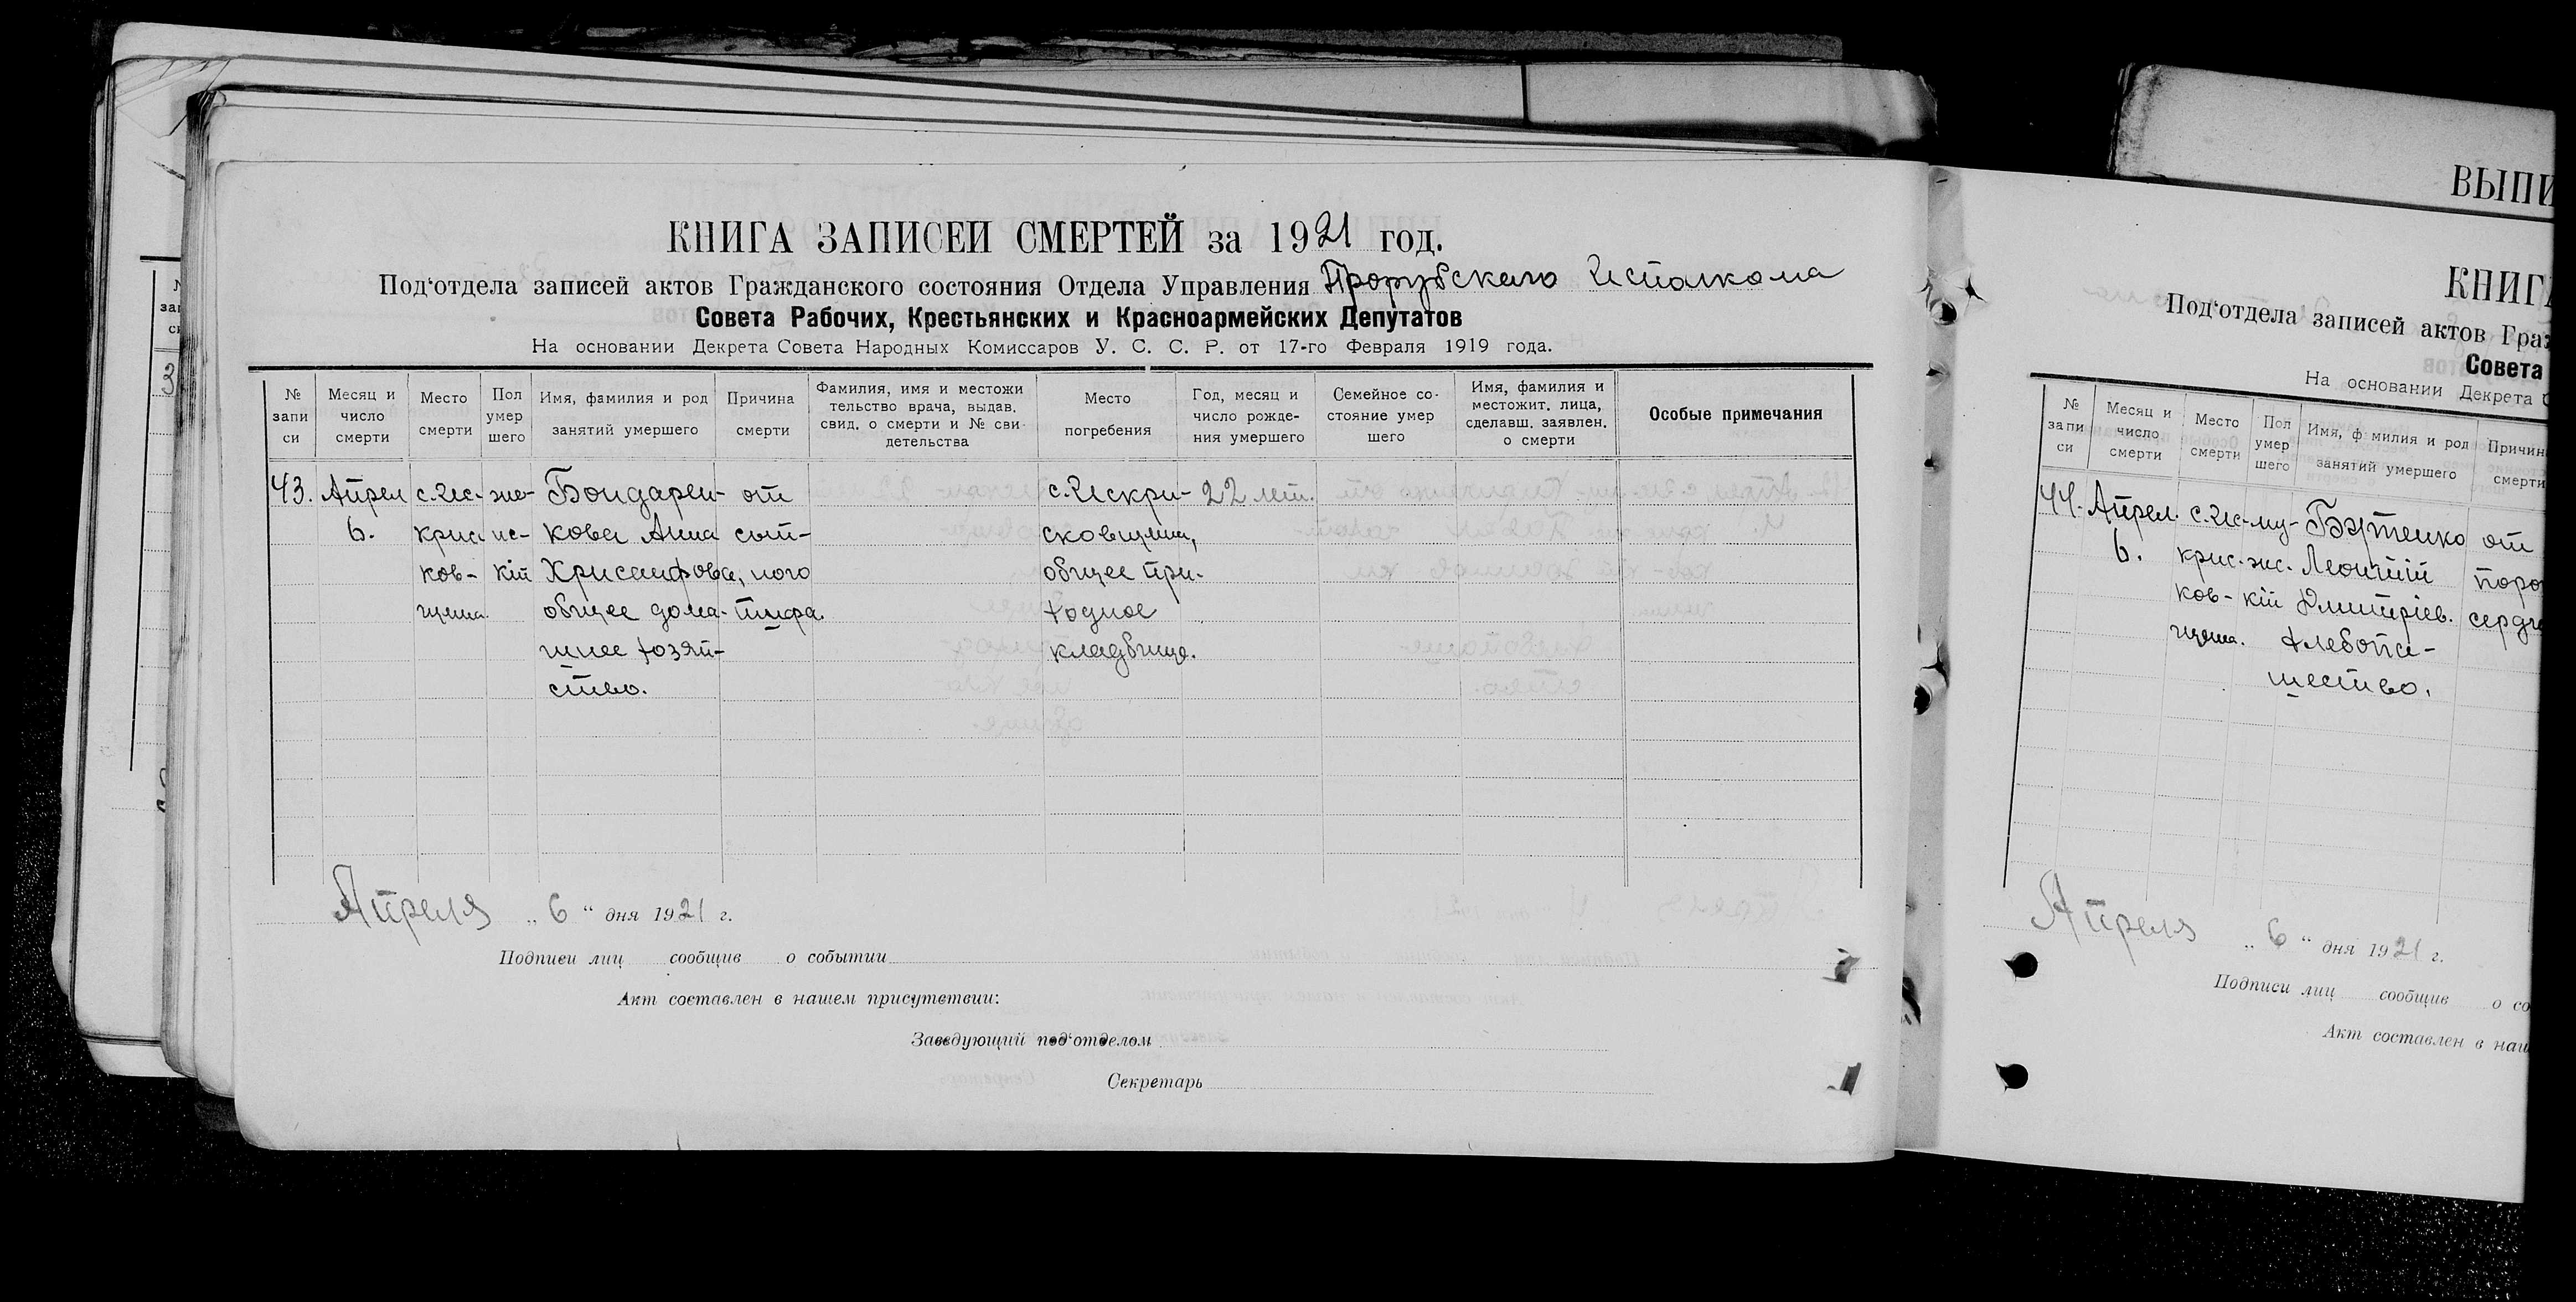 КНИГА ЗАПИСЕЙ СМЕРТЕЙ за 1921 год.
Под'отдела записей актов Гражданского состояния Отдела Управления Прорубского Исполкома
Совета Рабочих, Крестьянских и Красноармейских Депутатов
На основании Декрета Совета Народных Комиссаров У. С. С. Р. от 17-го Февраля 1919 года.
№ запи си
Месяц и число смерти
Место смерти
Пол умер шего
Имя, фамилия и род занятий умершего
Причина смерти
Фамилия, имя и местожи тельство врача, выдав. свид. о смерти и № сви- детельства
Место погребения
Год, месяц и число рожде- ния умершего
Семейное со- стояние умер шего
Имя, фамилия и местожит. лица, сделавш. заявлен. о смерти
Особые примечания
43. Апрел с. Ис- же- Бондарен- от с. Искри- 22 лет.
6. крис нс- кова Анна сып- сковщина,
ков- кій Хрисанфова, ного общее при-
щина. общее дома- тифа. ходное
шнее хозяй- кладбище.
ство.
Апреля „ 6 “ дня 1921 г.
Подписи лиц сообщив о событии
Акт составлен в нашем присутствии:
Заведующий под'отделом
Секретарь
ВЫПИ
КНИГА
Под'отдела записей актов Граж
Совета
На основании Декрета С
№ запи си
Месяц и число смерти
Место смерти
Пол умер шего
Имя, ф милия и род занятий умершего
Причин смерти
44. Апрел. с. Ис- му- Бутенко от
6. крис- жс- Леонтій поро
ков- кій Дмитріев. сердц
щина. хлебопа-
шество.
Апреля „ 6 “ дня 1921 г.
Подписи лиц сообщив о со
Акт составлен в наш